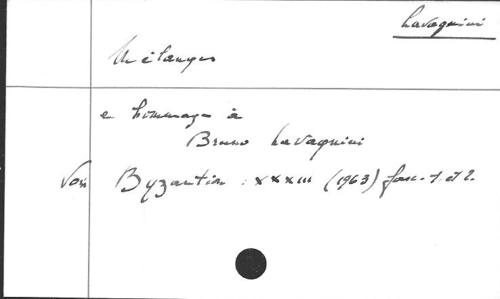 Lavagnini
Mélanges
en hommage à
Bruno Lavagnini
Voir Byzantion : XXXIII (1963) fasc. 1 et 2.